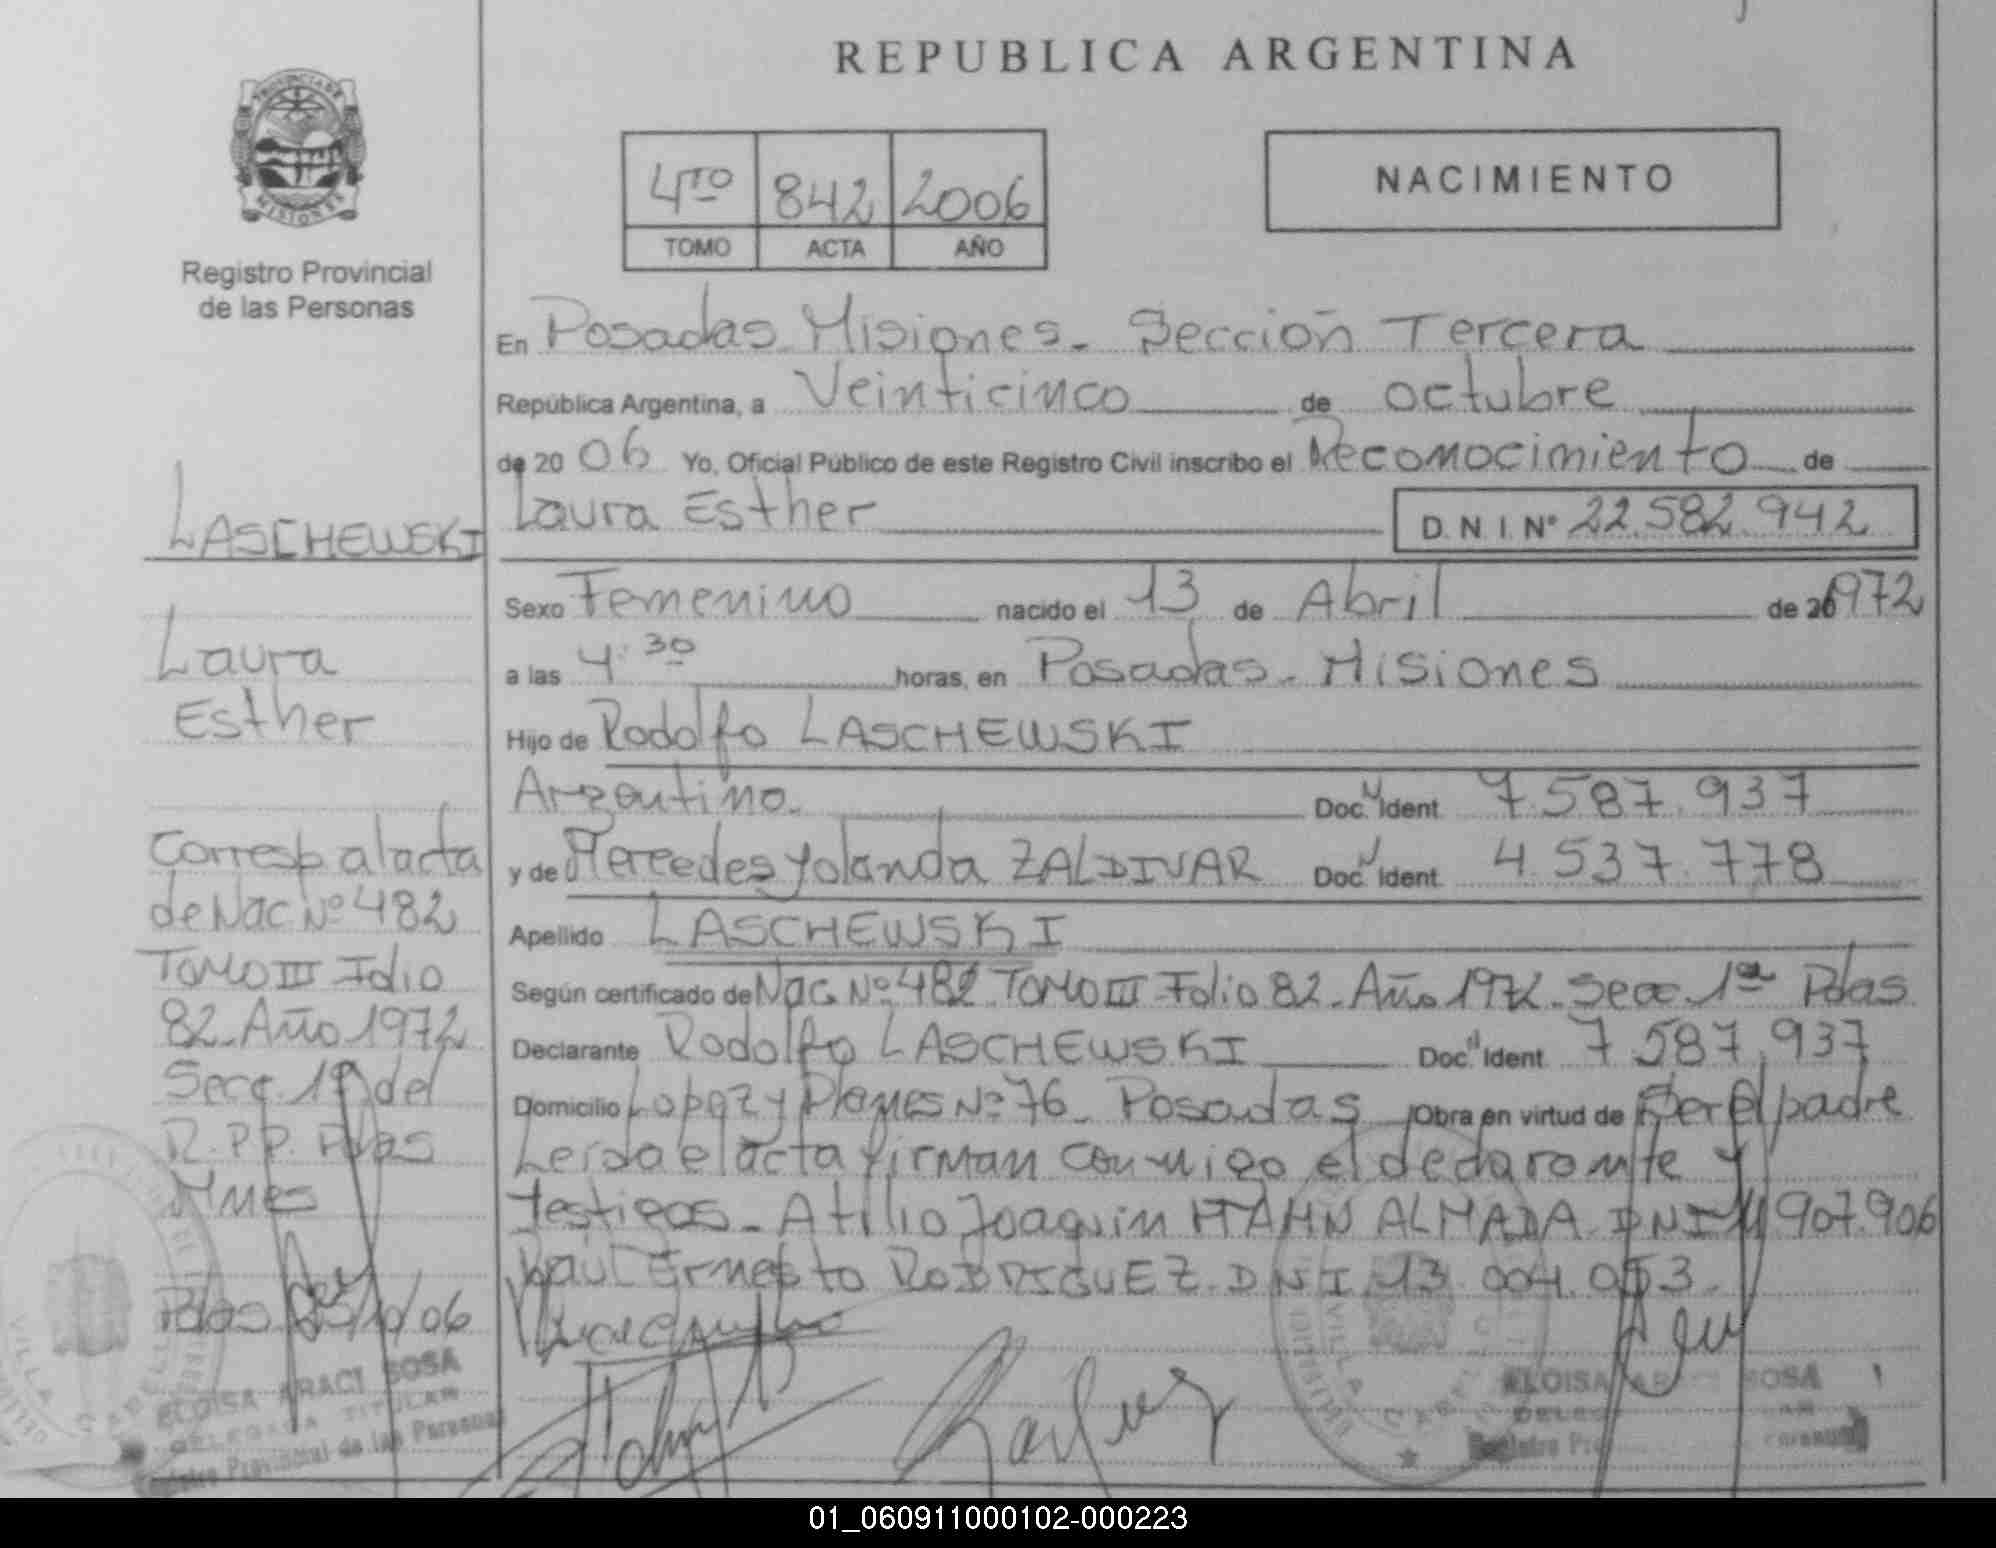 REPUBLICA ARGENTINA
PROVINCIA DE
MISIONES
Registro Provincial
de las Personas
4TO 842 2006
TOMO ACTA AÑO
NACIMIENTO
En Posadas Misiones - Sección Tercera
República Argentina, a Veinticinco de octubre
de 2006 Yo, Oficial Público de este Registro Civil inscribo el Reconocimiento de
Laura Esther D.N.I. Nº 22.582.942
Sexo Femenino nacido el 13 de Abril de 20 1972
a las 4:30 horas, en Posadas - Misiones
Hijo de Rodolfo LASCHEWSKI
Argentino. Doc. Ident. 7.587.937
y de Mercedes Yolanda ZALDIVAR Doc. Ident. 4.537.778
Apellido LASCHEWSKI
Según certificado de Nac. Nº 482 TOMO III Folio 82 - Año 1972 - Secc. 1ra Pdas
Declarante Rodolfo LASCHEWSKI Doc. Ident. 7.587.937
Domicilio Lopez y Planes Nº 76 - Posadas Obra en virtud de Ser el padre
Leida el acta firman conmigo el declarante y
Testigos - Atilio Joaquin HAHN ALMADA DNI 11.907.906
Raul Ernesto RODRIGUEZ D.N.I. 13.004.053.
LASCHEWSKI
Laura
Esther
Corresp al acta
de Nac Nº 482
TOMO III Folio
82 - Año 1972
Secc. 1º del
R.P.P. Pdas
Mnes
Pdas 25/10/06
ELOISA ARACI SOSA
DELEGADA TITULAR
Registro Provincial de las Personas
VILLA CABELLO
ELOISA ARACI SOSA
01_060911000102-000223